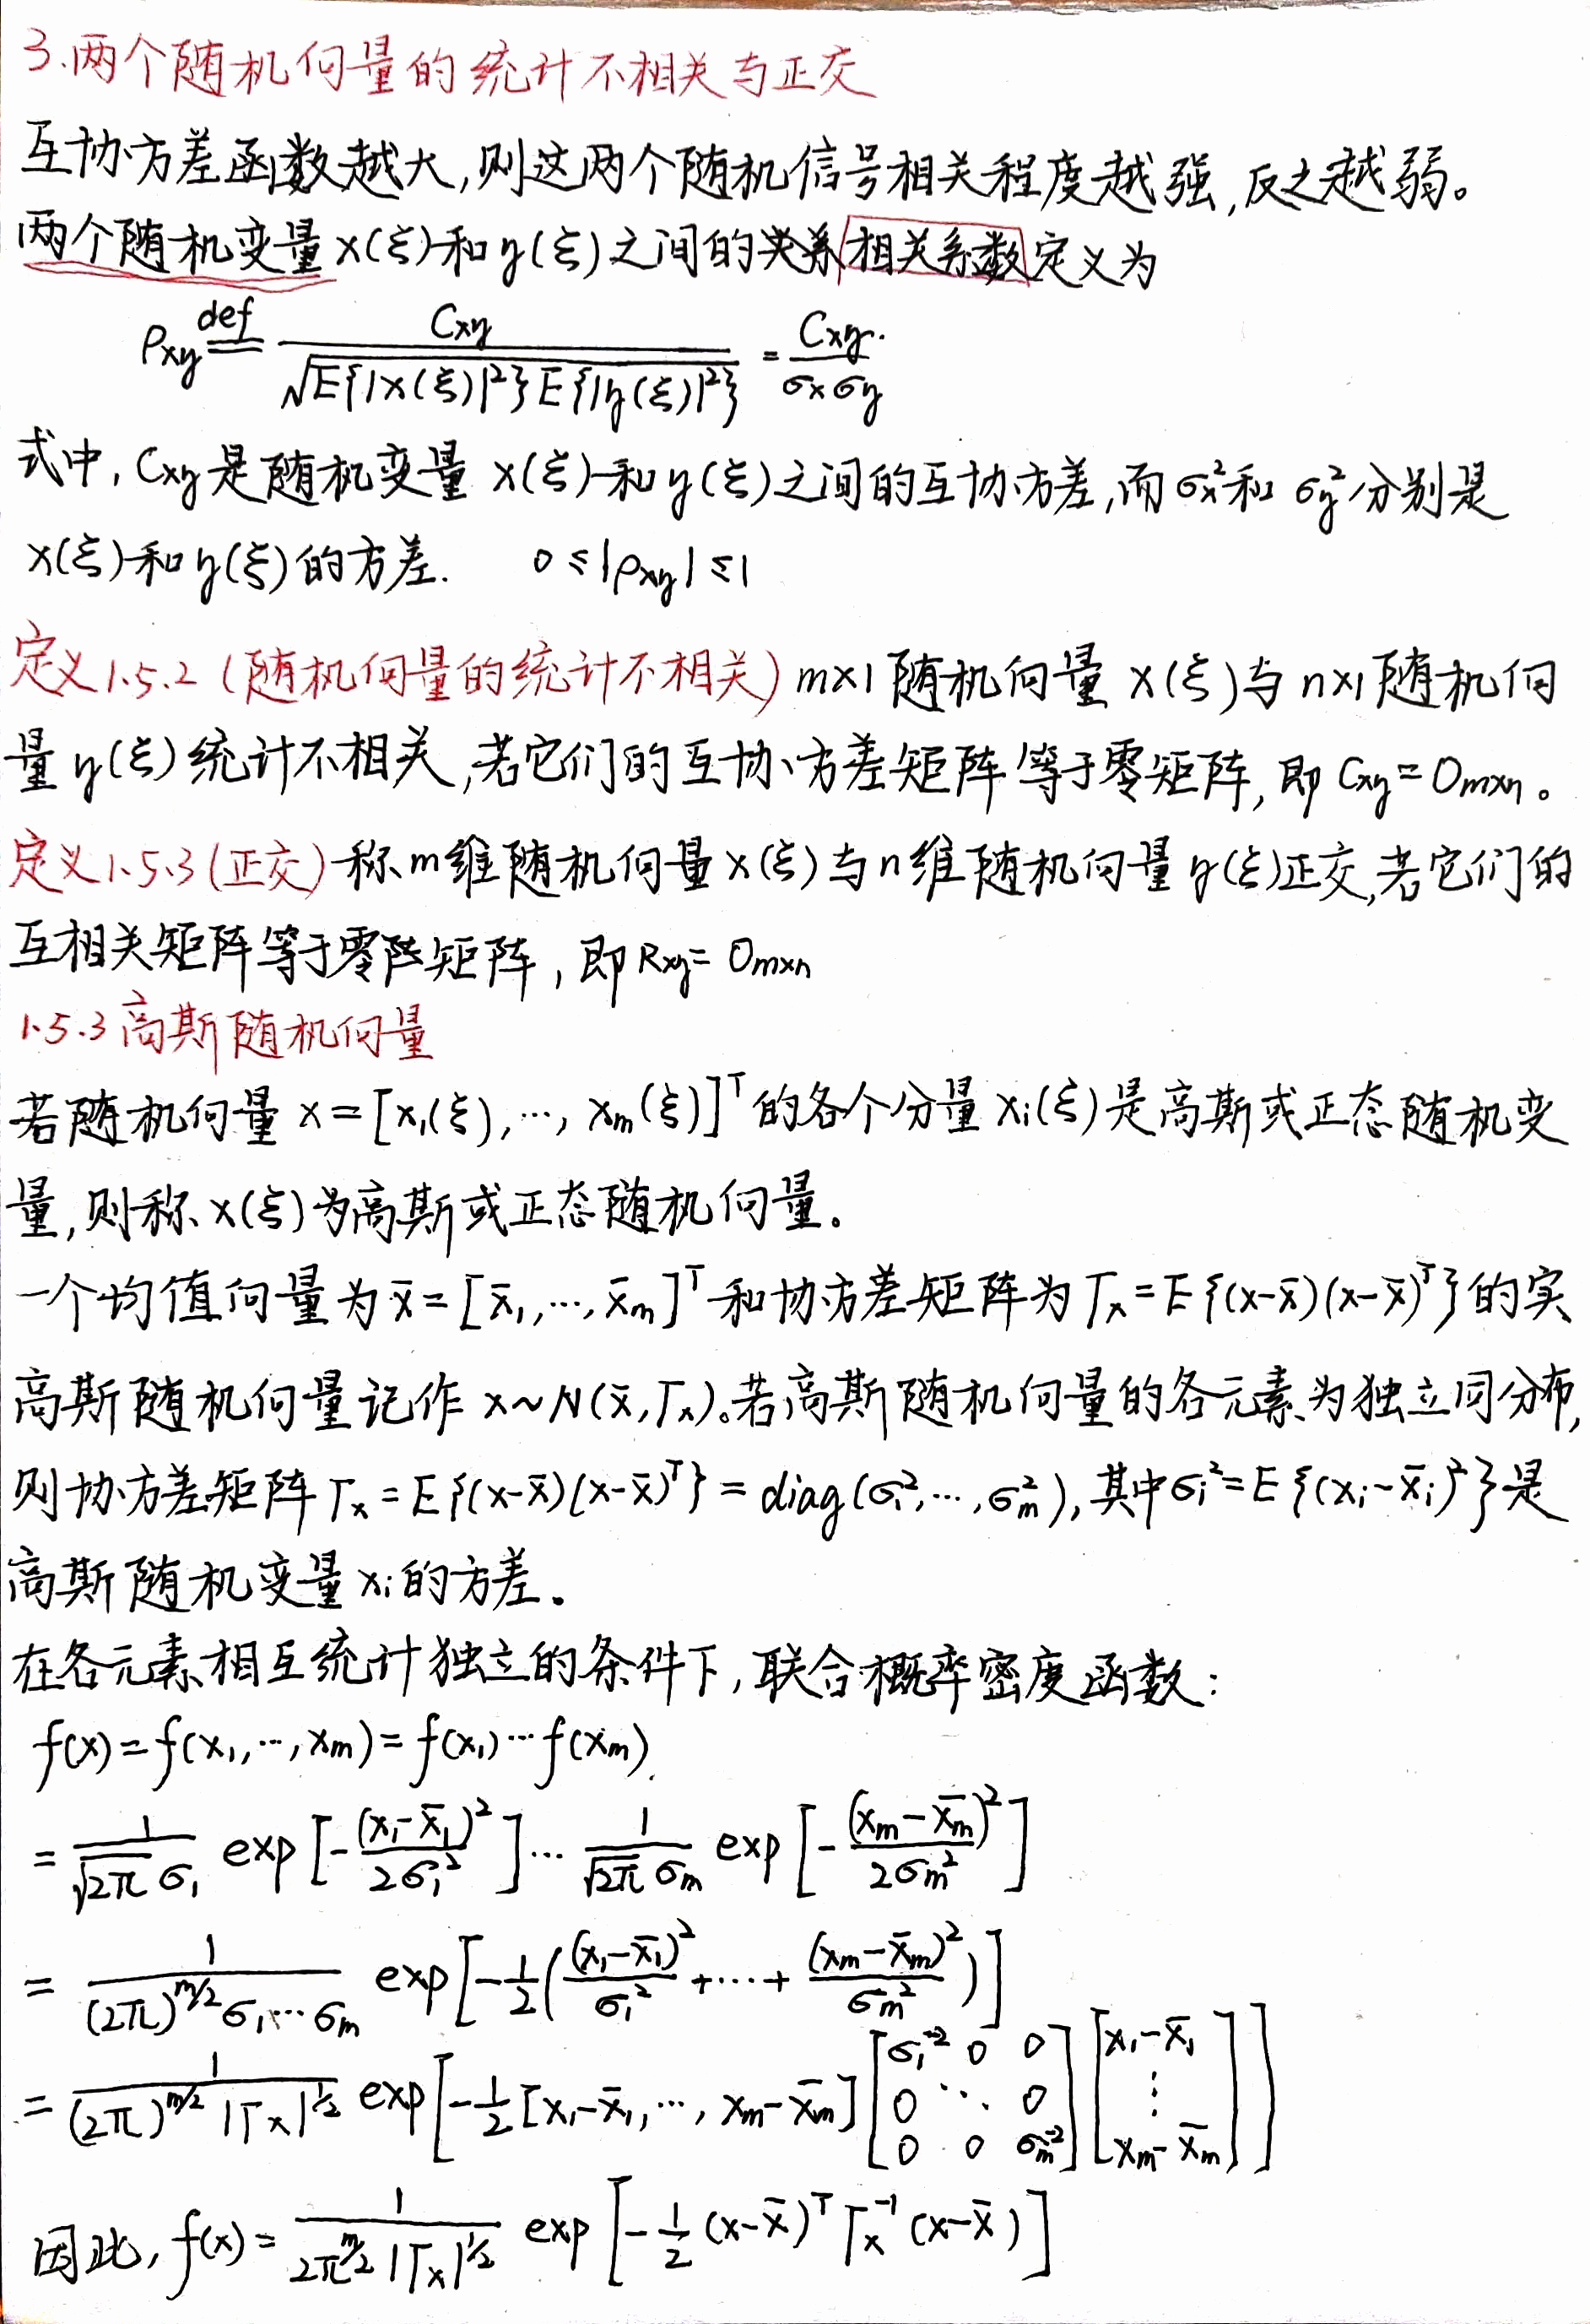 3.两个随机向量的统计不相关与正交
互协方差函数越大,则这两个随机信号相关程度越强,反之越弱。
两个随机变量x(ξ)和y(ξ)之间的相关系数定义为
ρxy def= Cxy / √E{|x(ξ)|²}E{|y(ξ)|²} = Cxy / σxσy
式中, Cxy是随机变量 x(ξ)和y(ξ)之间的互协方差,而σx²和 σy²分别是
x(ξ)和y(ξ)的方差. 0≤|ρxy|≤1
定义1.5.2 (随机向量的统计不相关) m×1随机向量 x(ξ)与 n×1随机向
量 y(ξ)统计不相关,若它们的互协方差矩阵等于零矩阵,即 Cxy=Om×n。
定义1.5.3(正交) 称m维随机向量x(ξ)与n维随机向量y(ξ)正交,若它们的
互相关矩阵等于零矩阵,即Rxy=Om×n
1.5.3高斯随机向量
若随机向量 x=[x₁(ξ),…,xm(ξ)]ᵀ的各个分量xi(ξ)是高斯或正态随机变
量,则称x(ξ)为高斯或正态随机向量。
一个均值向量为x̄=[x̄₁,…,x̄m]ᵀ和协方差矩阵为Γx=E{(x-x̄)(x-x̄)ᵀ}的实
高斯随机向量记作 x~N(x̄,Γx)。若高斯随机向量的各元素为独立同分布,
则协方差矩阵Γx=E{(x-x̄)(x-x̄)ᵀ}=diag(σ₁²,…,σm²),其中σi²=E{(xi-x̄i)²}是
高斯随机变量xi的方差。
在各元素相互统计独立的条件下,联合概率密度函数:
f(x)=f(x₁,…,xm)=f(x₁)…f(xm)
= 1/(√2π σ₁) exp[-(x₁-x̄₁)²/2σ₁²]… 1/(√2π σm) exp[-(xm-x̄m)²/2σm²]
= 1/((2π)^m/2 σ₁…σm) exp[-1/2((x₁-x̄₁)²/σ₁²+…+(xm-x̄m)²/σm²)]
= 1/((2π)^m/2 |Γx|^1/2) exp[-1/2[x₁-x̄₁,…,xm-x̄m][σ₁⁻² 0 0; 0 ⋱ 0; 0 0 σm⁻²][x₁-x̄₁; ⋮; xm-x̄m]]
因此, f(x)= 1/(2π^m/2 |Γx|^1/2) exp[-1/2(x-x̄)ᵀΓx⁻¹(x-x̄)]